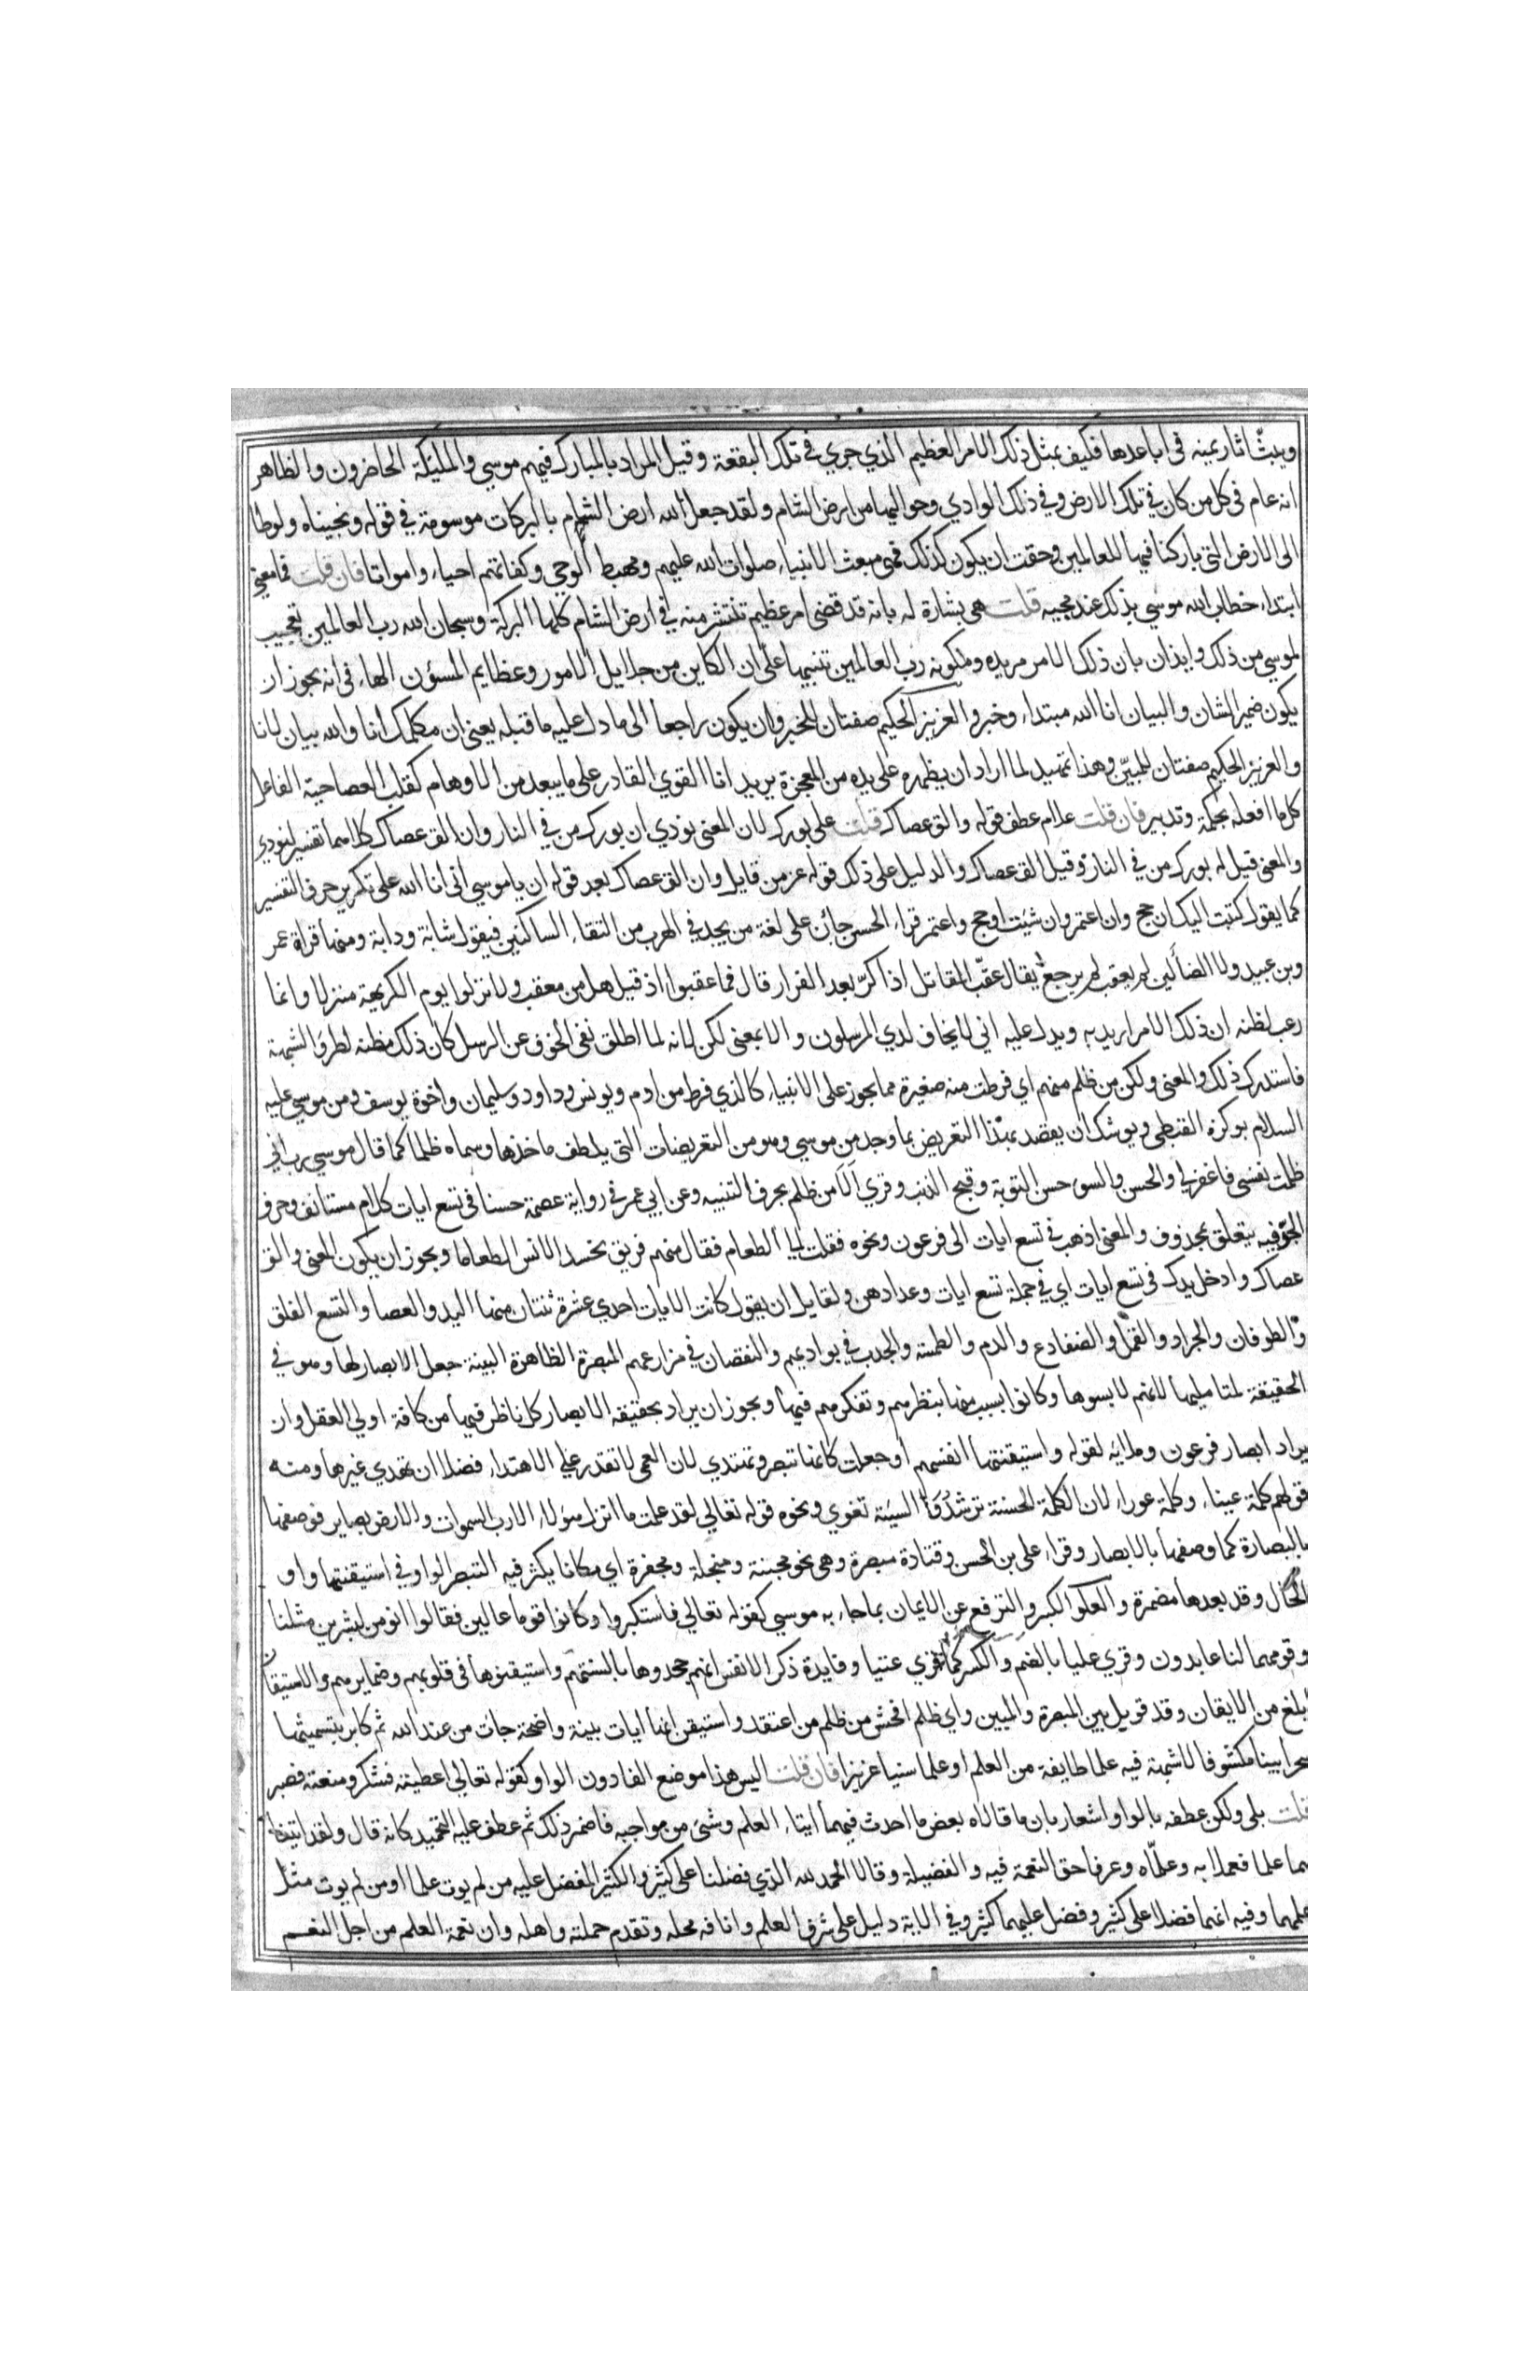 ويبثّ اثار يمنه في اباعدها فكيف بمثل ذلك الامر العظيم الذي جري في تلك البقعة وقيل المراد بالمبارك فيهم موسي والملئكة الحاضرون والظاهر
انه عام في كل من كان في تلك الارض وفي ذلك الوادي وحواليهما من ارض الشام ولقد جعل الله ارض الشام بالبركات موسومة في قوله ونجيناه ولوطا
الى الارض التي باركنا فيها للعالمين وحقت ان يكون كذلك فهي مبعث الانبياء صلوات الله عليهم ومهبط الوحي وكفاتهم احياء وامواتا فان قلت فما معني
ابتداء خطاب الله موسي بذلك عند مجيه قلت هي بشارة له بانه قد قضي امر عظيم تنتشر منه في ارض الشام كلها البركة وسبحان الله رب العالمين تعجيب
لموسي من ذلك وايذان بان ذلك الامر مريده ومكونه رب العالمين تنبيها على ان الكاين من جلايل الامور وعظايم الشؤن الهاء في انه يجوز ان
يكون ضمير الشان والبيان انا الله مبتداء وخبر والعزيز الحكيم صفتان للخبر وان يكون راجعا الى ما دل عليه ما قبله يعني ان مكلمك انا والله بيان لانا
والعزيز الحكيم صفتان للمبيّن وهذا تمهيد لما اراد ان يظهره على يده من المعجزة يريد انا القوي القادر على ما يبعد من الاوهام كقلب العصا حية الفاعل
كل ما افعله بحكمة وتدبير فان قلت علام عطف قوله والق عصاك قلت على بورك لان المعنى نودي ان بورك من في النار وان الق عصاك كلاهما تفسير لنودي
والمعنى قيل له بورك من في النار وقيل الق عصاك والدليل على ذلك قوله عز من قايل وان الق عصاك بعد قوله ان ياموسي اني انا الله على تكرير حرف التفسير
كما يقول كتبت اليك ان حج وان اعتمر وان شيت او حج واعتمر قراء الحسن جان على لغة من يجد في الهرب من التقاء الساكنين فيقول شابة ودابة ومنها قراة عمر
وبن عبيد ولا الضالين لم يعقب لم يرجع يقال عقّب المقاتل اذا كرّ بعد الفرار قال فما عقبوا اذ قيل هل من معقب ولا نزلوا يوم الكريهة منزلا وانما
رعب لظنه ان ذلك الامر اريد به ويدل عليه اني لا يخاف لدي المرسلون والا بمعنى لكن لانه لما اطلق نفي الخوف عن الرسل كان ذلك مظنه لطرو الشبهة
فاستدرك ذلك والمعنى ولكن من ظلم منهم اي فرطت منه صغيرة مما يجوز على الانبياء كالذي فرط من ادم ويونس وداود وسليمان واخوة يوسف ومن موسي عليه
السلام بوكزه القبطي ويوشك ان يقصد بهذا التعريض بما وجد من موسي وهو من التعريضات التي يلطف ماخذها وسماه ظلما كما قال موسي رب اني
ظلمت نفسي فاغفر لي والحسن والسوء حسن التوبة وقبح الذنب وقري اَلَا من ظلم بحرف التنبيه وعن ابي عمر في رواية عصمة حسنا في تسع ايات كلام مستانف وحرف
الجرّ فيه يتعلق بمحذوف والمعنى اذهب في تسع ايات الى فرعون ونحوه فقلت لي الطعام فقال منهم فريق نحسد الانس الطعاما ويجوز ان يكون المعنى والق
عصاك وادخل يدك في تسع ايات اي في جملة تسع ايات وعدادهن ولقايل ان يقول كانت الايات احدي عشرة ثنتان منها اليد والعصا والتسع الفلق
والطوفان والجراد والقمّل والضفادع والدم والطمسة والجدب في بواديهم والنقصان في مزارعهم المبصرة الظاهرة البينة جعل الابصار لها وهو في
الحقيقة لمتامليها لانهم لابسوها وكانوا بسبب منها بنظرهم وتفكرهم فيها ويجوز ان يراد بحقيقة الابصار كل ناظر فيها من كافة اولي العقل وان
يراد ابصار فرعون وملايه لقوله واستيقنتها انفسهم او جعلت كانها تبصر وتهتدي لان العمي لا تقدر على الاهتداء فضلا ان تهدي غيرها ومنه
قولهم كلمة عيناء وكلمة عوراء لان الكلمة الحسنة ترشد والسيئة تغوي ونحوه قوله تعالي لقد علمت ما انزل هؤلاء الا رب السموات والارض بصاير فوصفها
بالبصارة كما وصفها بالابصار وقراء علي بن الحسن وقتادة مبصرة وهي نحو مجبنة ومبخلة ومجفرة اي مكانا يكثر فيه التبصر الواو في استيقنتها واو
الحال وقد بعدها مضمرة والعلو الكبر والترفع عن الايمان بما جاء به موسي كقوله تعالي فاستكبروا وكانوا قوما عالين فقالوا انومن لبشرين مثلنا
وقومهما لنا عابدون وقري عليا بالضم والكسر كما قري عتيا وفايدة ذكر الانفس انهم جحدوها بالسنتهم واستيقنوها في قلوبهم وضمايرهم والاستيقان
ابلغ من الايقان وقد قوبل بين المبصرة والمبين واي ظلم افحش من ظلم من اعتقد واستيقن انها ايات بينة واضحة جات من عند الله ثم كابر بتسميتها
سحرا بينا مكشوفا لا شبهة فيه علما طايفة من العلم او علما سنيا عزيزا فان قلت اليس هذا موضع الفا دون الواو كقوله تعالي اعطيته فشكر ومنعته فصبر
قلت بلى ولكن عطفه بالواو اشعار بان ما قالاه بعض ما احدث فيهما ايتاء العلم وشئ من مواجبه فاضمر ذلك ثم عطف عليه التحميد كانه قال ولقد اتيناهما
هما علما فعملا به وعلّماه وعرفا حق النعمة فيه والفضيلة وقالا الحمد لله الذي فضلنا على كثير والكثير المفضل عليه من لم يوت علما او من لم يوت مثل
علمهما وفيه انهما فضلا على كثير وفضل عليهما كثير وفي الاية دليل على شرف العلم وانافه محله وتقدم حملته واهله وان نعمة العلم من اجل النعم